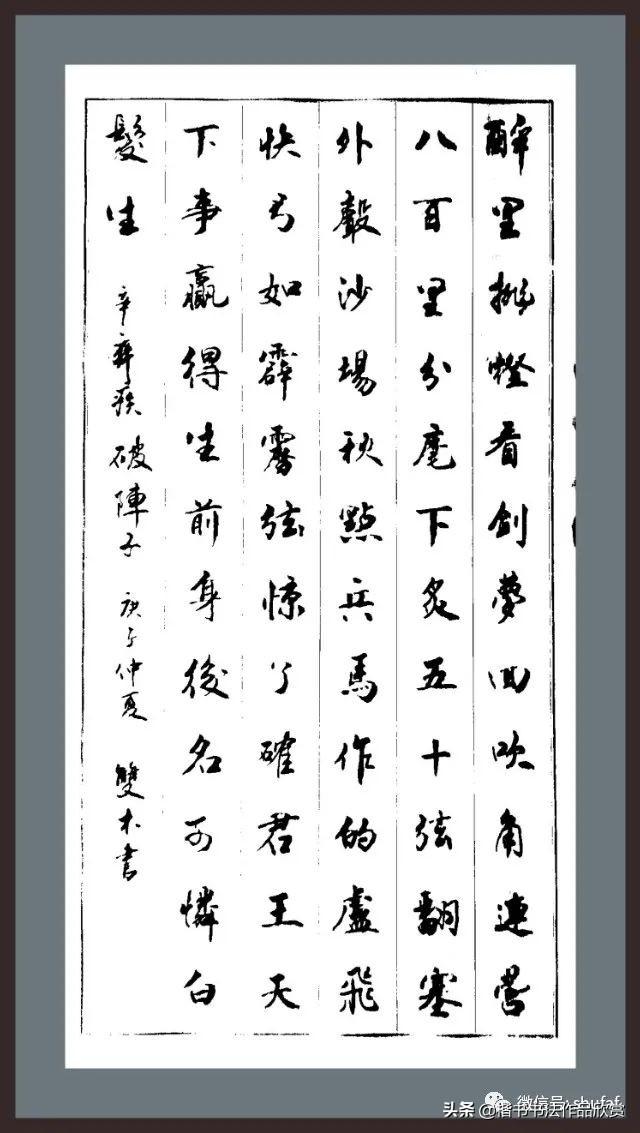 醉里挑燈看劍夢回吹角連營
八百里分麾下炙五十弦翻塞
外聲沙場秋點兵馬作的盧飛
快弓如霹靂弦惊了確君王天
下事贏得生前身後名可憐白
髮生 辛棄疾破陣子 庚子仲夏 雙木書
微信号: shufaf
头条 @楷书书法作品欣赏